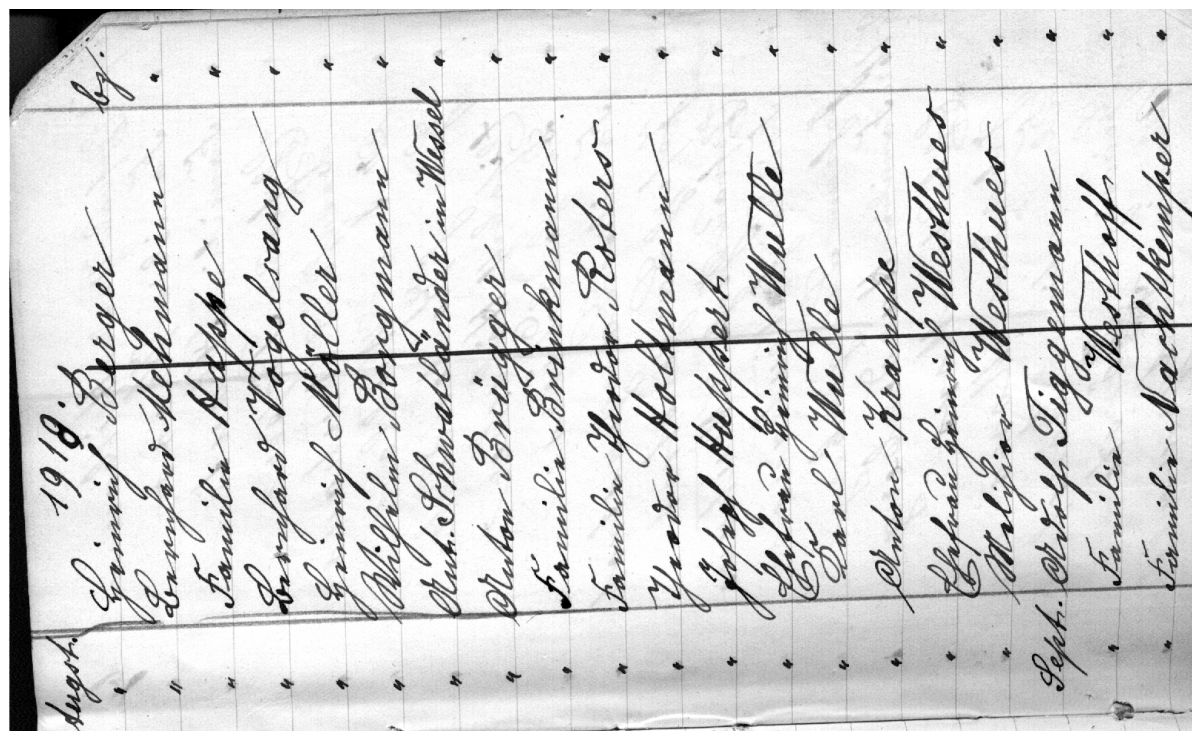 1918.
Augst. Heinrich Berger bz.
" Bernhard Mehmann "
" Familie Happe "
" Bernhard Vogelsang "
" Heinrich Möller "
" Wilhelm Borgmann "
" Ant. Schwalländer in Wessel "
" Anton Brüger "
" Familie Brinkmann "
" Familie Roters "
" Holtmann "
" Josef Huppert "
" Ehefrau Heinrich Wulle "
" Carl Wulle "
" Anton Krampe "
" Ehefrau Heinrich Westhues "
" Melchior Westhues "
Sept. Adolf Figgemann "
" Familie Westhoff "
" Familie Nachtkemper "